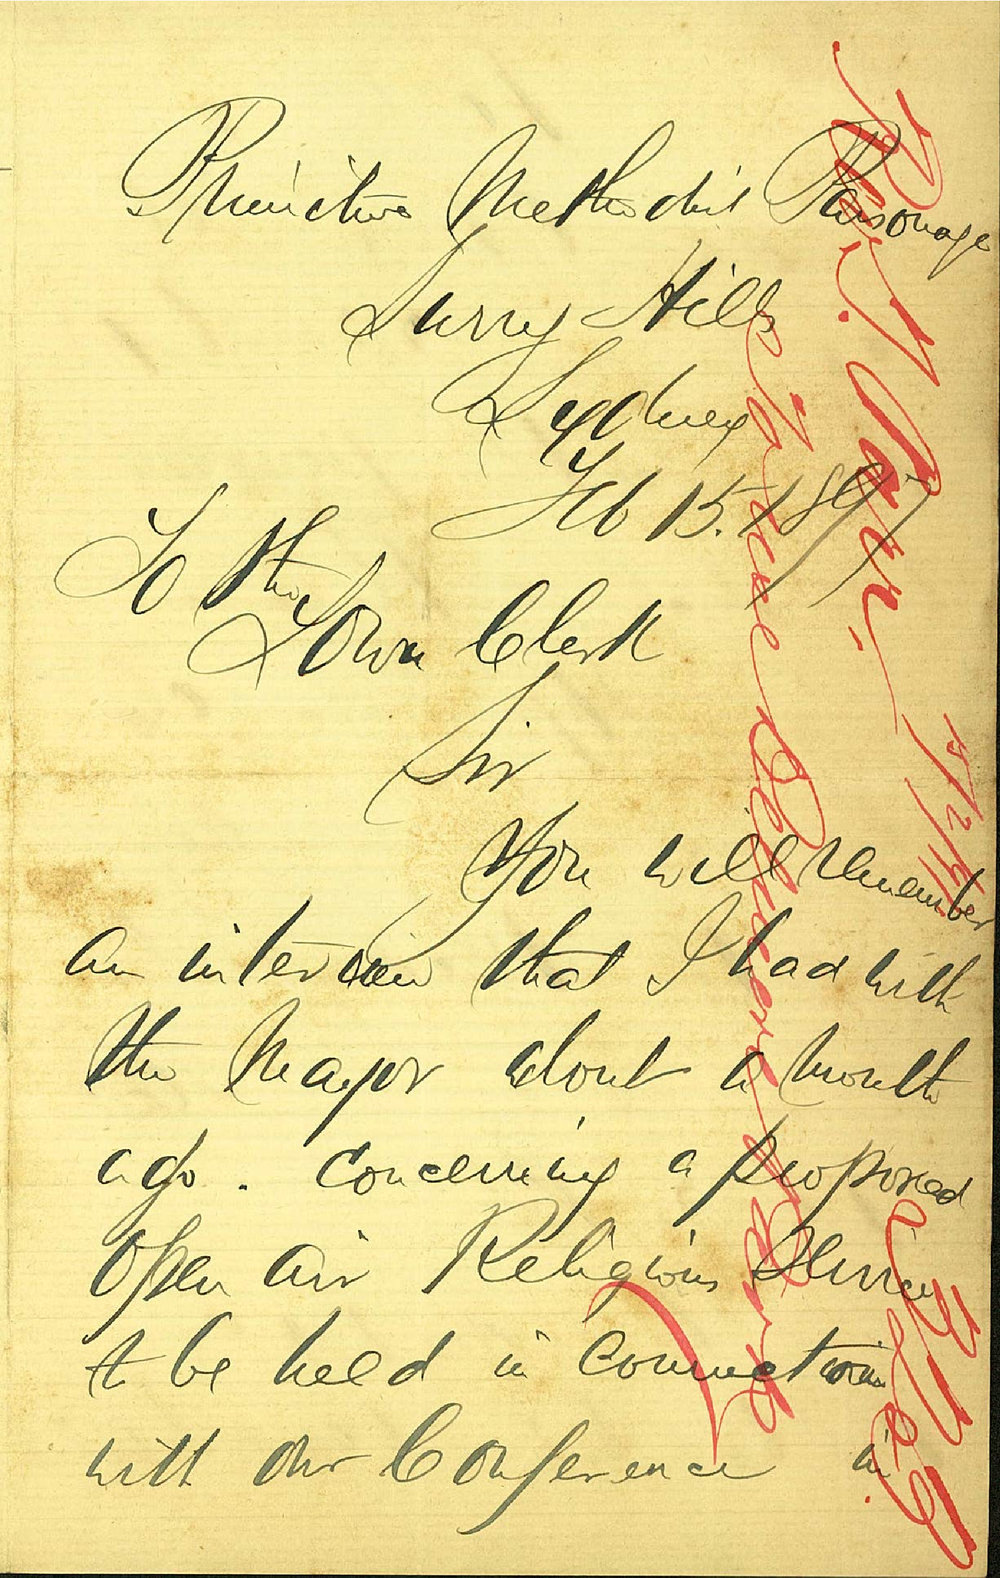 Primitive Methodist Parsonage
Surry Hills
Sydney
Feb 15. 1897
To the
Town Clerk
Sir
You will remember
an interview that I had with
the Mayor about a month
ago. concerning a proposed
Open air Religious Service
to be held in connection
with our Conference in
Rev. J. Parr.
15/2/97